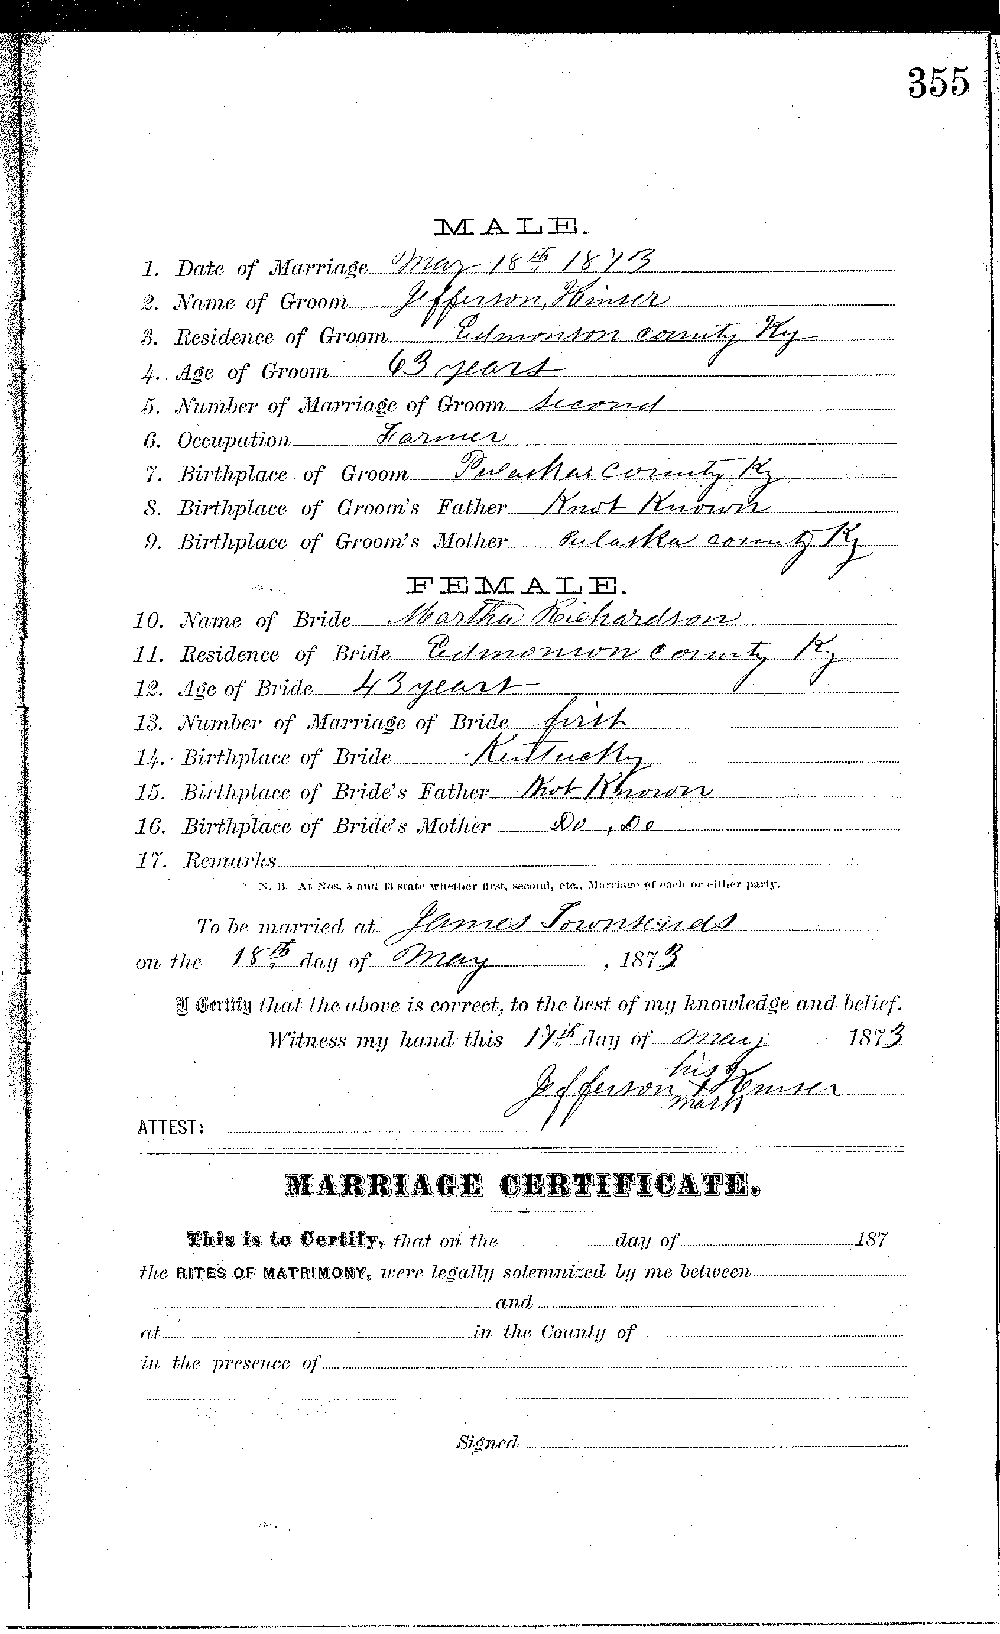 355
MALE.
1. Date of Marriage May 18th 1873
2. Name of Groom Jefferson Kinser
3. Residence of Groom Edmonson county Ky
4. Age of Groom 63 years
5. Number of Marriage of Groom Second
6. Occupation Farmer
7. Birthplace of Groom Pulaskas county Ky
8. Birthplace of Groom's Father Knot Known
9. Birthplace of Groom's Mother Pulaska county Ky
FEMALE.
10. Name of Bride Martha Richardson
11. Residence of Bride Edmonson county Ky
12. Age of Bride 43 years
13. Number of Marriage of Bride first
14. Birthplace of Bride Kentucky
15. Birthplace of Bride's Father Knot Known
16. Birthplace of Bride's Mother Do , Do
17. Remarks
N. B. At Nos. 5 and 13 state whether first, second, etc., Marriage of each or either party.
To be married at James Townsends
on the 18th day of May , 1873
I Certify that the above is correct, to the best of my knowledge and belief.
Witness my hand this 17th day of May 1873
his
Jefferson X Kinser
mark
ATTEST:
MARRIAGE CERTIFICATE.
This is to Certify, that on the day of 187
the RITES OF MATRIMONY, were legally solemnized by me between
and
at in the County of
in the presence of
Signed